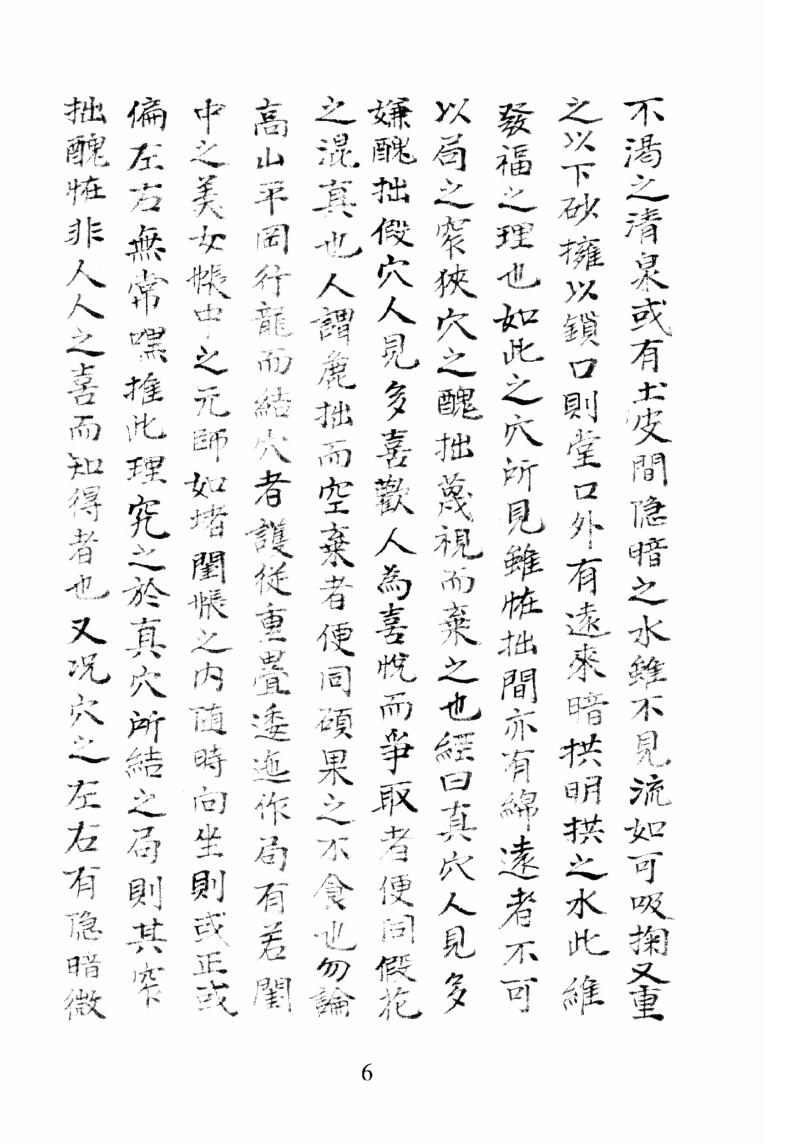 不渴之清泉或有土皮間隐暗之水雖不見流如可吸掬又重
之以下砂擁以鎖口則堂口外有遠來暗拱明拱之水此維
發福之理也如此之穴所見雖恠拙間亦有綿遠者不可
以局之窄狹穴之醜拙蔑視而棄之也經曰真穴人見多
嫌醜拙假穴人見多喜歡人為喜悅而爭取者便同假花
之混真也人謂麁拙而空棄者便同碩果之不食也勿論
高山平岡行龍而結穴者護從重疊逶迤作局有若閨
中之美女帳中之元師如堵闈帳之内随時向坐則或正或
偏左右無常嘿推此理究之於真穴所結之局則其窄
拙醜恠非人人之喜而知得者也又况穴之左右有隐暗微
6